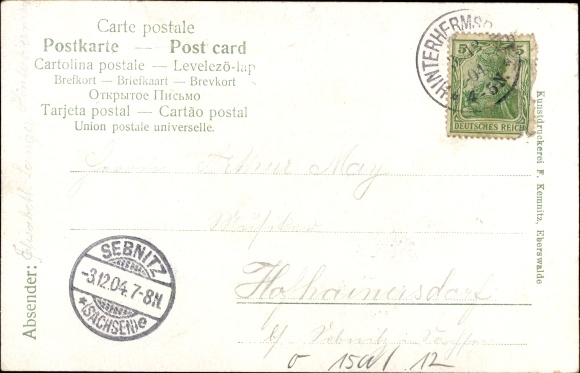 Carte postale
Postkarte — Post card
Cartolina postale — Levelező-lap
Brefkort — Briefkaart — Brevkort
Открытое Письмо
Tarjeta postal — Cartão postal
Union postale universelle.
HINTERHERMSDORF
5 5
DEUTSCHES REICH
Kunstdruckerei F. Kemnitz, Eberswalde
Absender:
Herrn Arthur May
Hofhainersdorf
b/ Sebnitz i. Sachsen
SEBNITZ
-3.12.04. 7-8.N.
*(SACHSEN)e
12